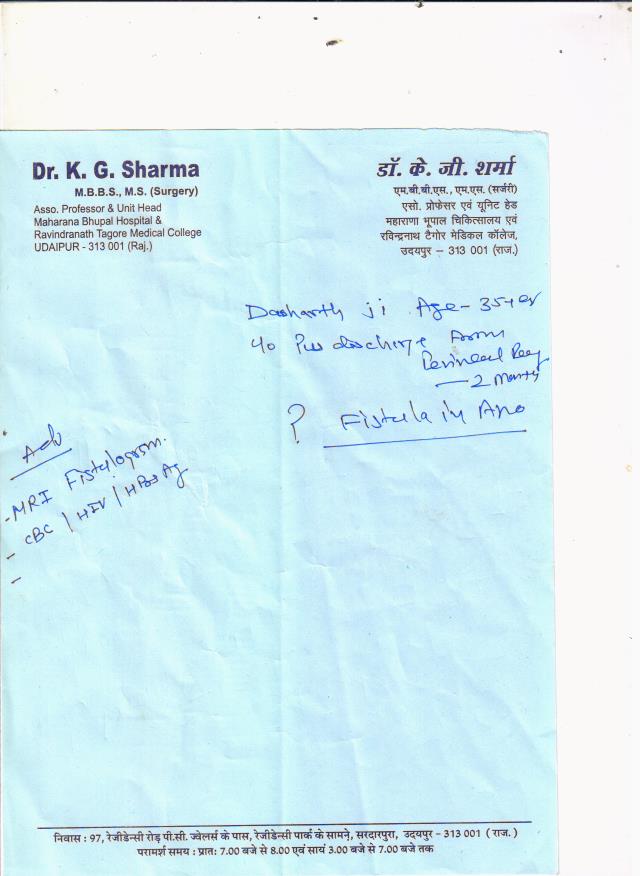 Dr. K. G. Sharma
M.B.B.S., M.S. (Surgery)
Asso. Professor & Unit Head
Maharana Bhupal Hospital &
Ravindranath Tagore Medical College
UDAIPUR - 313 001 (Raj.)
डॉ. के. जी. शर्मा
एम.बी.बी.एस., एम.एस. (सर्जरी)
एसो. प्रोफेसर एवं यूनिट हेड
महाराणा भूपाल चिकित्सालय एवं
रविन्द्रनाथ टैगोर मेडिकल कॉलेज,
उदयपुर – 313 001 (राज.)
Dasharth ji Age - 35 yer
Pus discharge from
Perineal Reg
— 2 Months
? Fistula in Ano
Adv
- MRI Fistulogram.
- CBC / HIV / HBsAg
-
निवास : 97, रेजीडेन्सी रोड़ पी.सी. ज्वेलर्स के पास, रेजीडेन्सी पार्क के सामने, सरदारपुरा, उदयपुर – 313 001 ( राज. )
परामर्श समय : प्रातः 7.00 बजे से 8.00 एवं सायं 3.00 बजे से 7.00 बजे तक